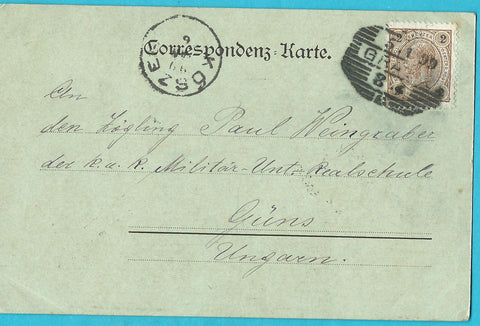 Correspondenz-Karte.
KÖSZEG
2
An
den Zögling Paul Weingraber
der k. u. k. Militär-Unt. Realschule
Güns
Ungarn.